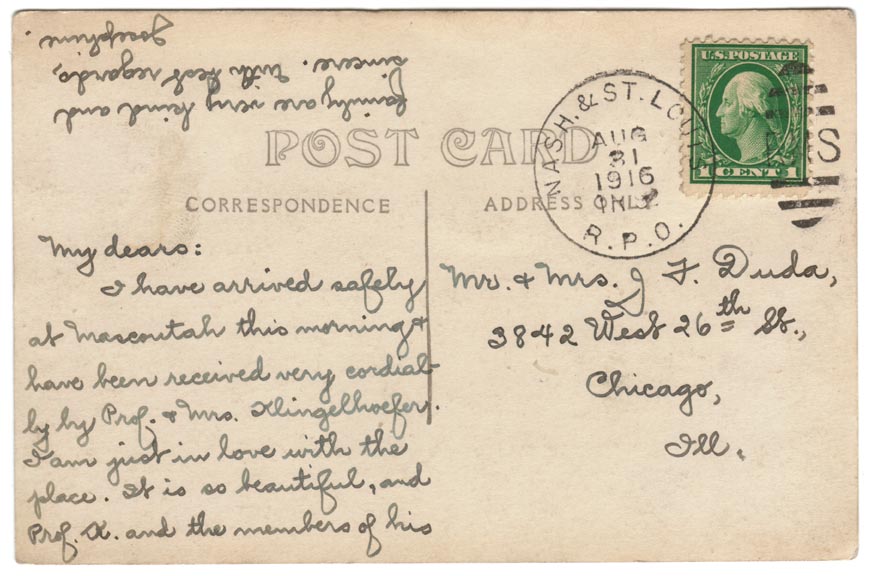 POST CARD
CORRESPONDENCE
ADDRESS ONLY
U.S. POSTAGE
1 CENT 1
NASH. & ST. LOUIS
AUG
31
1916
R.P.O.
My dears:
I have arrived safely
at Mascoutah this morning &
have been received very cordial-
ly by Prof. & Mrs. Klingelhoefer.
I am just in love with the
place. It is so beautiful, and
Prof. K. and the members of his
family are very kind and
sincere. With best regards,
Josephine
Mr. & Mrs. J. F. Duda,
3842 West 26th St.,
Chicago,
Ill.